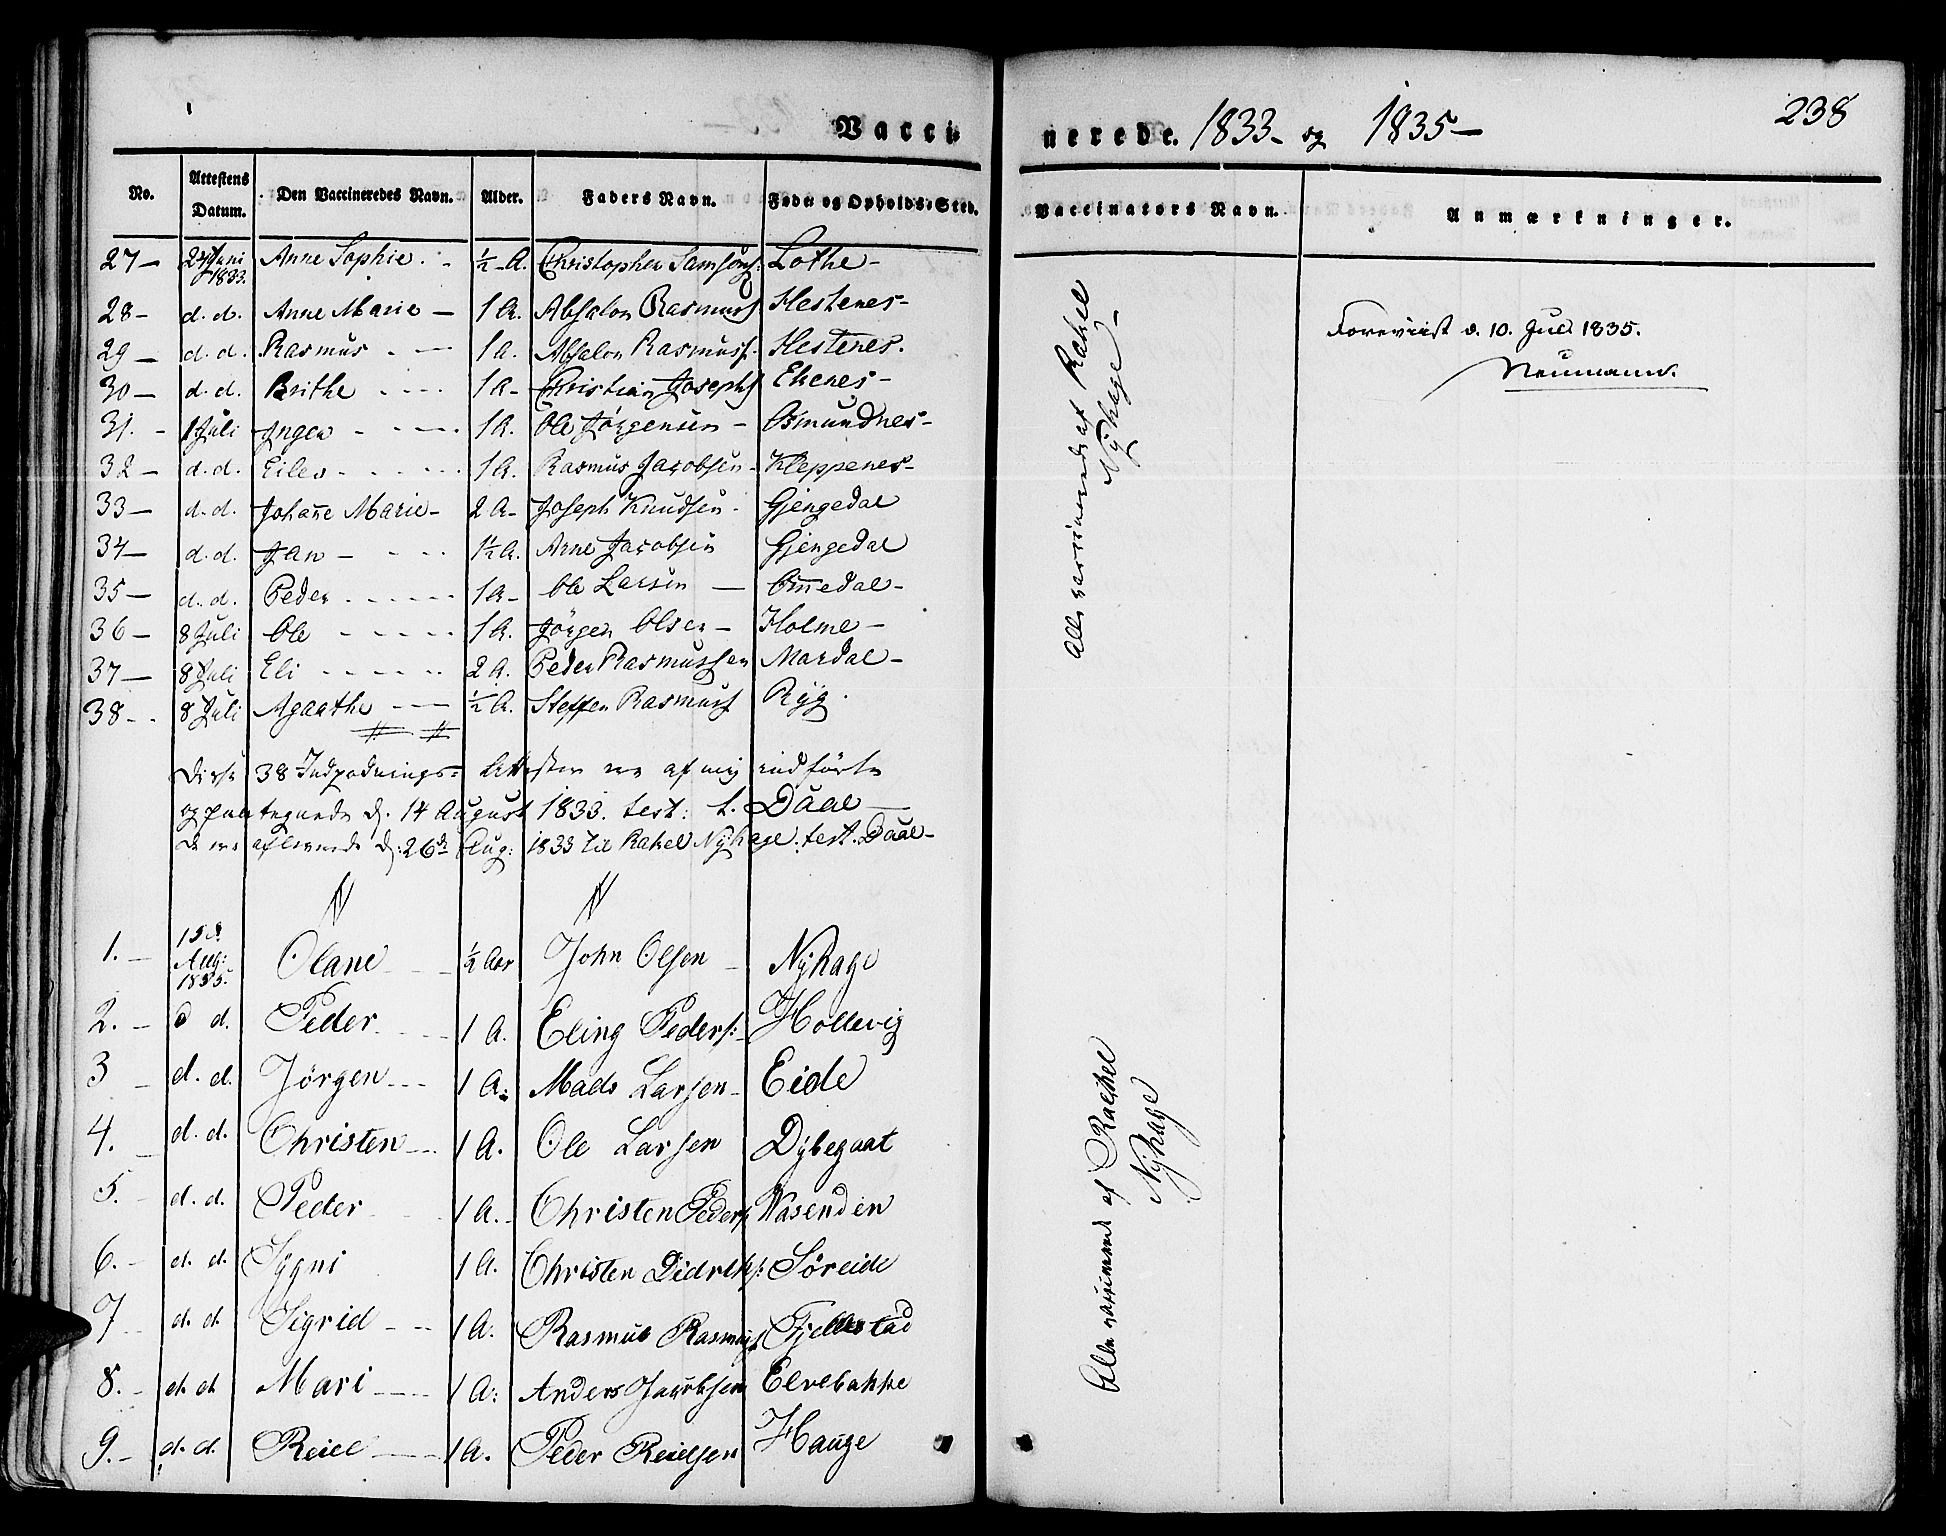 Vaccinerede. 1833 - og 1835 -
238
No. | Attestens Datum. | Den Vaccineredes Navn. | Alder. | Faders Navn. | Føde- og Opholds-Sted. | Vaccinators Navn. | Anmærkninger.
27 - 24 Juni 1833. Anne Sophie. - ½ A. Christopher Samsons: Lothe -
28 - d. d. Anne Marie - 1 A. Absalon Rasmuss Hestenes -
29 - d. d. Rasmus - 1 A. Absalon Rasmuss. Hestenes.
30 - d. d. Brithe - 1 A - Christian Josephs Ekenes -
31. - 1 Juli Inger - 1 A. Ole Jörgensen - Osmundnes -
32 - d. d. Eiler - 1 A. Rasmus Jacobsen - Kleppenes -
33 - d. d. Johane Marie - 2 A - Joseph Knudsen - Gjengedal
34 - d. d. Jan - 1½ A. Arne Jacobsen Gjengedal
35 - d. d. Peder - 1 A - Ole Larsen - Omedal -
36 - 8 Juli Ole - 1 A. Jörgen Olsen - Holme -
37 - 8 Juli Eli - 2 A. Peder Rasmussen Mardal -
38 - 8 Juli Agaathe - ½ A. Steffen Rasmuss Ryg.
Disse 38 Indpodnings- Attester ere af mig indförte
og paategnede d. 14 August 1833. test: t. Daae -
De ere afleverede d: 26de Aug: 1833 til Rakel Nÿhage. test. Daae -
1. - 15d. Aug: 1835. Olane - ½ Aar John Olsen - Nÿhage
2. - d d. Peder - 1 A. Eling Peders: - Hollevig
3 - d. d. Jörgen - 1 A: Mads Larsen - Eide
4. - d. d. Christen - 1 A. Ole Larsen Dÿbegaat
5. - d. d. Peder - 1 A. - Christen Peders Vasenden
6. - d. d. Sÿgni 1 A. Christen Didriks: Söreide
7 - d. d. Sigrid - 1 A. Rasmus Rasmuss Fjellestad
8. - d. d. Mari - 1 A: Anders Jacobsen Elvebakke
9. - d. d. Reiel - 1 A. Peder Reielsen Hauge
Alle vaccinerede af Rakel
Nÿhage -
Alle vaccinered af Rachel
Nÿhage
Foreviist d. 10. Juli 1835.
Neumann.